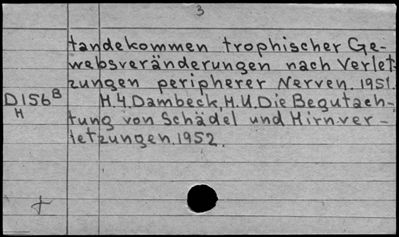 3
tandekommen trophischer Ge-
websveränderungen nach Verlet-
zungen peripherer Nerven. 1951.
D156B H.4. Dambeck, H.U. Die Begutach-
H tung von Schädel und Hirnver-
letzungen. 1952.